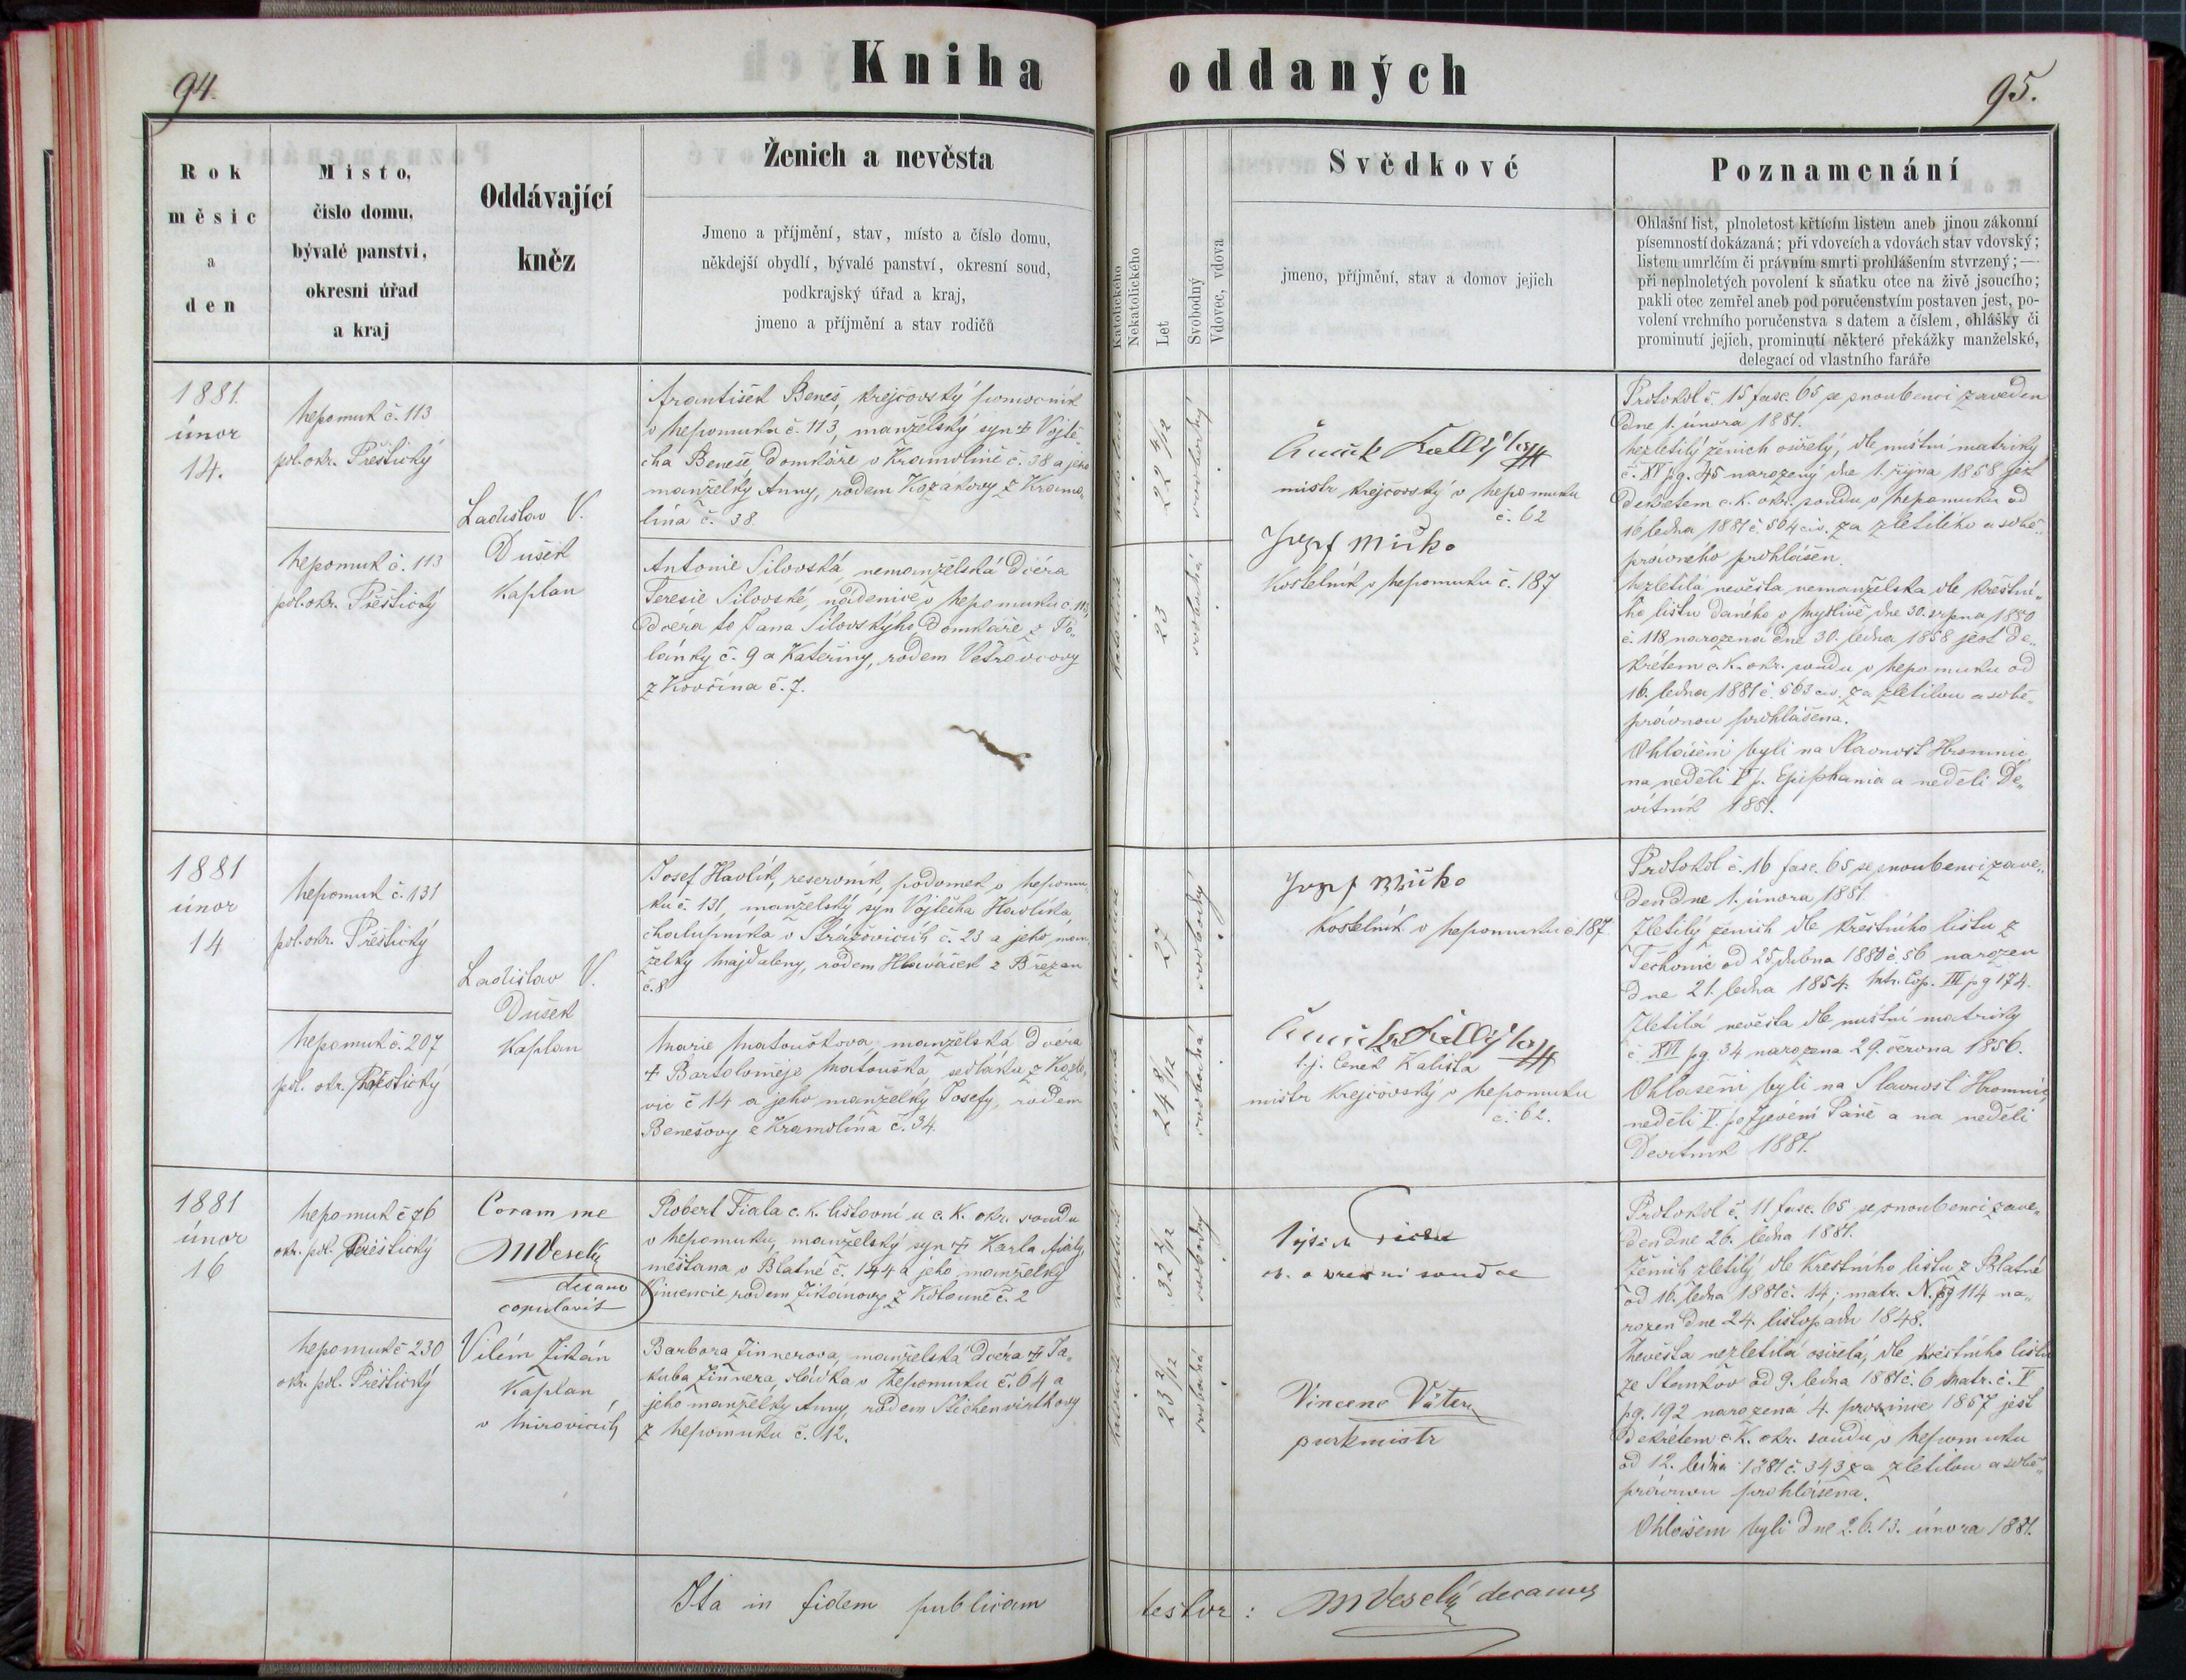 94.
Kniha oddaných
95.
Rok
měsic
a
den
Misto,
čislo domu,
bývalé panstvi,
okresni úřad
a kraj
Oddávající
kněz
Ženich a nevěsta
Jmeno a příjmění, stav, místo a číslo domu,
někdejší obydlí, bývalé panství, okresní soud,
podkrajský úřad a kraj,
jmeno a příjmění a stav rodičů
Katolického
Nekatolického
Let
Svobodný
Vdovec, vdova
Svědkové
jmeno, příjmění, stav a domov jejich
Poznamenání
Ohlašní list, plnoletost křtícím listem aneb jinou zákonní
písemností dokázaná; při vdovcích a vdovách stav vdovský;
listem umrlčím či právním smrti prohlášením stvrzený;—
při neplnoletých povolení k sňatku otce na živě jsoucího;
pakli otec zemřel aneb pod poručenstvím postaven jest, po-
volení vrchního poručenstva s datem a číslem, ohlášky či
prominutí jejich, prominutí některé překážky manželské,
delegací od vlastního faráře
1881.
únor
14.
Nepomuk č. 113
pol. okr. Přeštický
Nepomuk č. 113
pol. okr. Přeštický
Ladislav V.
Dušek
Kaplan
František Beneš, krejčovský pomocník
v Nepomuku č. 113, manželský syn + Vojtě-
cha Beneše, Domkáře v Kramolíně č. 38 a jeho
manželky Anny, rodem Kozákovy z Kramo-
lína č. 38.
Antonie Silovská, nemanželská dcéra
Teresie Silovské, nádenice v Nepomuku č. 113,
dcéra to Jana Silovskýho Domkáře z Po-
lánky č. 9 a Kateřiny, rodem Větrovcovy
z Kovčína č. 7.
katolické
22 4/12
svobodný
katolické
23
svobodná
mistr krejčovský v Nepomuku
č. 62
Josef Mičko
Kostelník v Nepomuku č. 187
Protokol č. 15 fasc. 65 se snoubenci zaveden
dne 1. února 1881.
Nezletilý ženich osiřelý, dle místní matriky
č. XV pg. 45 narozený dne 1. října 1858 jest
Dekretem c. k. okr. soudu v Nepomuku od
16 ledna 1881 č. 504 civ. za zletilého a sobě-
právného prohlášen.
Nezletilá nevěsta nemanželská dle křestní-
ho listu daného v Myslivě dne 30. srpna 1880
č. 118 narozena dne 30. ledna 1858 jest de-
krétem c. k. okr. soudu v Nepomuku od
16. ledna 1881 č. 503 civ. za zletilou a sobě-
právnou prohlášena.
Ohlášeni byli na Slavnost Hromnic
na neděli V p. Epiphania a neděli De-
vítník 1881.
1881
únor
14
Nepomuk č. 131
pol. okr. Přeštický
Nepomuk č. 207
pol. okr. Přeštický
Ladislav V.
Dušek
Kaplan
Josef Havlík, reservník, podomek v Nepomu-
ku č. 131, manželský syn Vojtěcha Havlíka,
chalupníka v Strážovicích č. 23 a jeho man-
želky Majdaleny, rodem Hlaváček z Břežan
č. 8
Marie Matoušková, manželská dcéra
+ Bartoloměje Matouška, sedláka z Kozlo-
vic č 14 a jeho manželky Josefy, rodem
Benešovy z Kramolína č. 34.
katolické
27
svobodný
katolické
24 8/12
svobodná
Josef Mičko
Kostelník v Nepomuku č. 187
t. j. Čeněk Kališta
mistr krejčovský v Nepomuku
č. 62.
Protokol č. 16 fasc. 65 se snoubenci zave-
den dne 1. února 1881.
Zletilý ženich dle křestního listu z
Těchonic od 25 dubna 1880 č. 56 narozen
dne 21. ledna 1854. Mtr. Cop. III pg 174.
Zletilá nevěsta dle místní matriky
č. XVI pg 34 narozena 29. června 1856.
Ohlášeni byli na Slavnost Hromnic,
neděli V. po Zjevení Páně a na neděli
Devítník 1881.
1881
únor
16
Nepomuk č 76
okr. pol. Přeštický
Nepomuk č 230
okr. pol. Přeštický
Coram me
MVeselý
děcano
copulavit
Vilém Zikán
Kaplan
v Mirovicích
Robert Fiala c. k. listovní u c. k. okr. soudu
v Nepomuku, manželský syn + Karla Fialy,
měštana v Blatné č. 144 a jeho manželky
Vincencie rodem Zikánovy z
č. 2
Barbora Zinnerova, manželská dcéra + Ja-
kuba Zinnera, sládka v Nepomuku č. 64 a
jeho manželky Anny, rodem Stichenwirthovy
z Nepomuku č. 12.
katolické
32 2/12
svobodný
katolické
23 2/12
svobodná
soudce
Vincenc
purkmistr
Protokol č. 11 fasc. 65 se snoubenci zave-
den dne 26. ledna 1881.
Ženich zletilý dle křestního listu z Blatné
od 16. ledna 1881 č. 14; matr. N. pg 114 na-
rozen dne 24. listopadu 1848.
Nevěsta nezletilá osiřelá, dle křestního listu
ze Staňkov od 9. ledna 1881 č. 6 matr. č. V
pg. 192 narozená 4. prosince 1857 jest
dekrétem c. k. okr. soudu v Nepomuku
od 12. ledna 1881 č. 343 za zletilou a sobě-
právnou prohlášena.
Ohlášeni byli dne 2. 6. 13. února 1881.
Ita in fidem publicam testor: MVeselý decanus